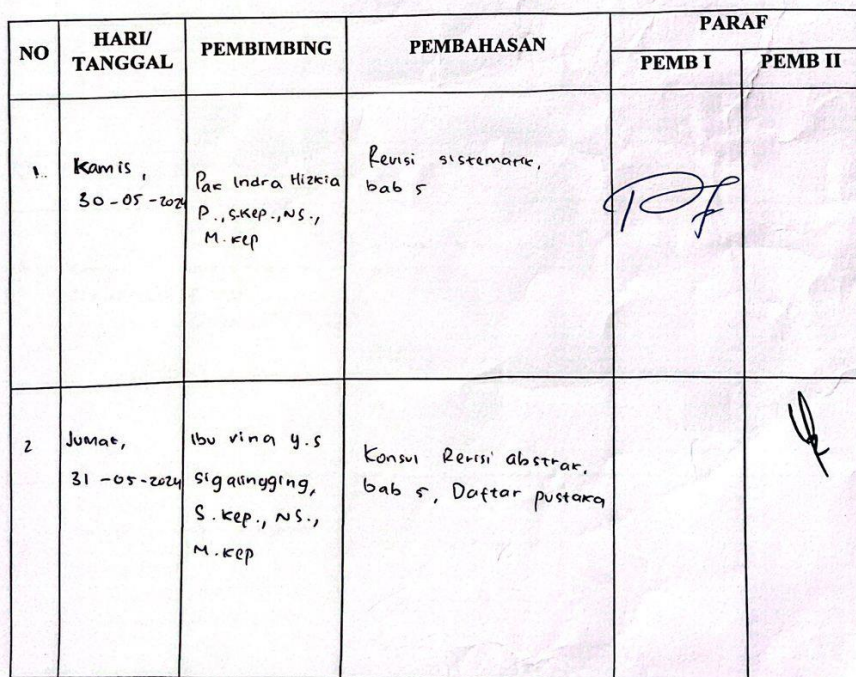 NO
HARI/
TANGGAL
PEMBIMBING
PEMBAHASAN
PARAF
PEMB I
PEMB II
1.
Kamis,
30-05-2024
Pak Indra Hizkia
P., S.Kep., NS.,
M.Kep
Revisi sistematik,
bab 5
2
Jumat,
31-05-2024
Ibu Vina Y.S
Sigalingging,
S.Kep., NS.,
M.Kep
Konsul Revisi abstrak,
bab 5, Daftar pustaka